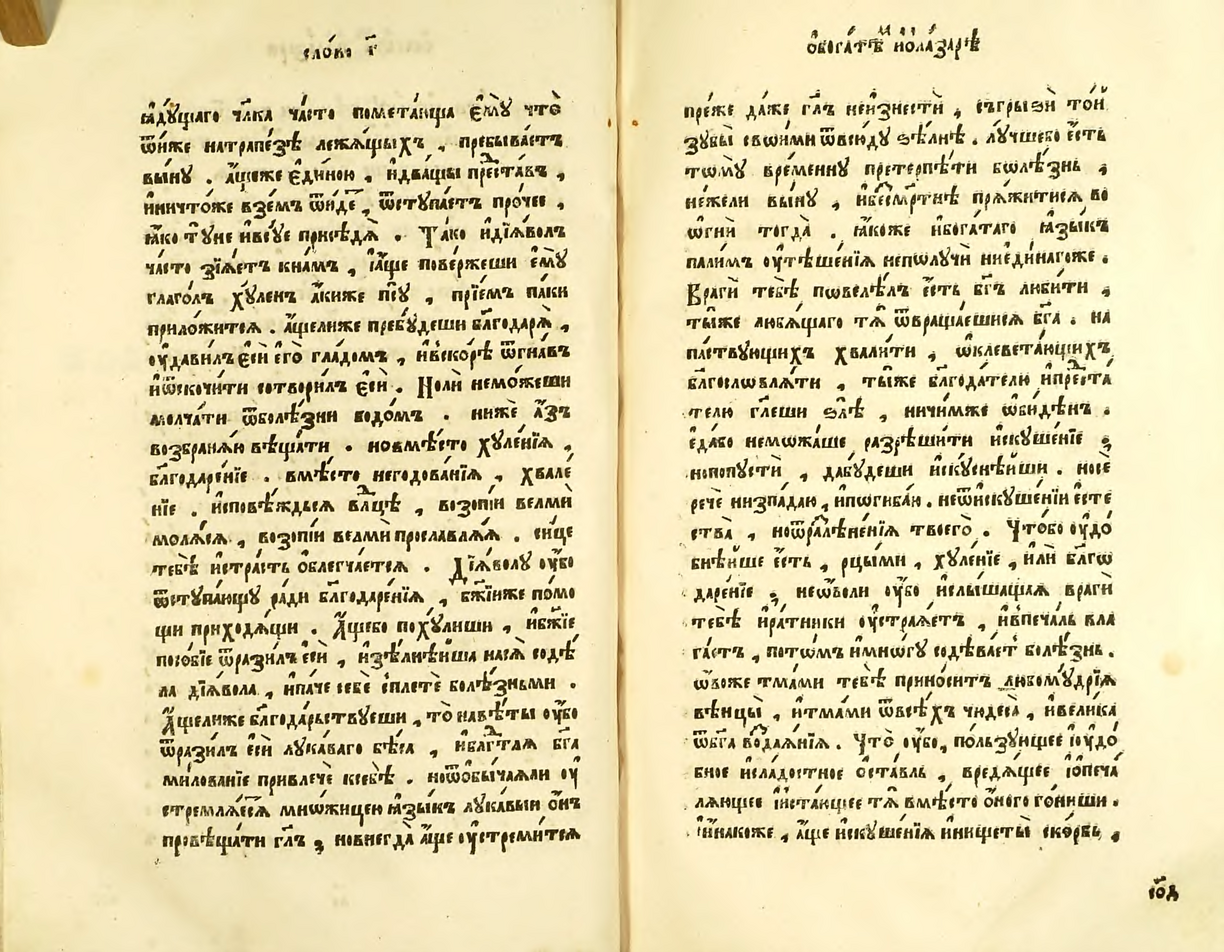 сло́во г҃
ꙗ҆дꙋ́щаго чл҃ка ча́сто помета́юща є҆мꙋ̀ что̀
ѿни́же натрапе́зѣ лежа́щыхъ , пребыва́етъ
вы́нꙋ . а҆́щеже є҆ди́ною , и҆два́щы преста́въ ,
и҆ничто́же взе́мъ ѿи́де , ѿстꙋпа́етъ про́чее ,
ꙗ҆́ко тꙋ́не и҆всꙋ́е присѣдѧ̀ . Та́ко и҆дїѧ́волъ
ча́сто зїѧ́етъ кна́мъ , і҆а҆́ще пове́ржеши є҆мꙋ̀
глаго́лъ хꙋ́ленъ а҆́киже псꙋ̀ , прїе́мъ па́ки
приложи́тсѧ . а҆́щелиже пребꙋ́деши бл҃годарѧ̀ ,
ᲂу҆дави́лъ є҆сѝ є҆го̀ гла́домъ , и҆вско́рѣ ѿгна́въ
и҆ѿскочи́ти сотвори́лъ є҆сѝ . Но́ли немо́жеши
молча́ти ѿболѣ́зни водо́мъ . нижѐ а҆́зъ
возбранѧ́ю вѣща́ти . новмѣ́сто хꙋле́нїѧ ,
бл҃годаре́нїе . вмѣ́сто негодова́нїѧ , хвале́
нїе . и҆сповѣ́ждьсѧ влⷣцѣ , возопі́й велмѝ
молѧ́сѧ , возопі́й велмѝ прославлѧ́ѧ . си́це
тебѣ̀ и҆стра́сть ѡ҆блегча́етсѧ . Дїѧ́волꙋ ᲂу҆́бо
ѿстꙋпа́ющꙋ ра́ди бл҃годаре́нїѧ , бж҃їиже по́мо
щи приходѧ́щи . А҆́щебо похꙋ́лиши , и҆бж҃їе
посо́бїе ѿрази́лъ є҆сѝ , и҆зѣлнѣ́йша насѧ̀ содѣ́
ла дїѧ́вола , и҆па́че себѐ сплетѐ болѣ́зньми .
А҆́щелиже бл҃года́рьствꙋеши , то̀ навѣ́ты ᲂу҆́бо
ѿрази́лъ є҆сѝ лꙋка́ваго бѣ́са , и҆бл҃гⷣтаѧ бг҃а
милова́нїе привлечѐ ксебѣ̀ . ноѿѡбы́чаѧми ᲂу҆
стремлѧ́ѧсѧ мно́жицею ꙗ҆зы́къ лꙋка́выи ѻ҆́нъ
провѣща́ти гл҃ъ , новнегда̀ а҆́ще ᲂу҆стреми́тсѧ
ѻ҆бога́тѣмъ и҆ѻ҆ла́зарѣ
пре́же да́же гл҃ъ неи҆знестѝ , сꙿгрызѝ то́й
зꙋбы̀ свои́ми ѿвсю́дꙋ ѕѣ́лнѣ . лꙋ́чшебо є҆́сть
томꙋ̀ вре́меннꙋ претерпѣ́ти болѣ́знь ,
не́жели вы́нꙋ , и҆бесме́ртнѣ прѧжи́тисѧ во
ѻ҆гнѝ тогда̀ . ꙗ҆́коже и҆бога́таго ꙗ҆зы́къ
пали́мъ ᲂу҆тѣше́нїѧ неполꙋчѝ ниеди́нагоже .
Врагѝ тебѣ̀ повелѣ́лъ є҆́сть бг҃ъ люби́ти ,
ты́же лю́бѧщаго тѧ̀ ѿвраща́ешисѧ бг҃а . на
па́ствꙋющихъ хвали́ти , ѡ҆клевета́ющихъ
бл҃гословлѧ́ти , ты́же бл҃года́телю и҆предста́
телю гл҃еши ѕлѣ̀ , ничи́мже ѡ҆би́дѣнъ .
є҆да́бо немо́жаше разрѣши́ти и҆скꙋше́нїе ,
нопопꙋстѝ , дабꙋ́деши и҆скꙋ́снѣйши . носѐ
речѐ низпа́даю , и҆погиба́ю . неѿи҆скꙋше́нїи є҆сте
ства̀ , ноѿразлѣне́нїѧ твоего̀ . Что́бо ᲂу҆до́
бнѣйше є҆́сть , рцы́ми , хꙋле́нїе , и҆лѝ бл҃го
даре́нїе , неѡ҆воли ᲂу҆́бо и҆слы́шащаѧ врагѝ
тебѣ̀ и҆ра́тники ᲂу҆строѧ́етъ , и҆впеча́ль вла
га́етъ , пото́мъ и҆мно́гꙋ содѣва́етъ болѣ́знь .
ѡ҆во́же тма́ми тебѣ̀ прино́ситъ любомꙋ́дрїѧ
вѣнцы̀ , и҆тма́ми ѿвсѣ́хъ чюдеса̀ , и҆вели́ка
ѿбг҃а возⷣаѧ́нїѧ . Что̀ ᲂу҆́бо , по́льзꙋющее і҆ᲂу҆до́
бное и҆сла́достное ѡ҆ста́вль , вредѧ́щее і҆ѻ҆печа́
лѧющее і҆и҆ста́ющее тѧ̀ вмѣ́сто ѻ҆́ного го́ниши .
і҆и҆на́коже , а҆́ще и҆скꙋше́нїѧ и҆нищеты̀ ско́рбь ,